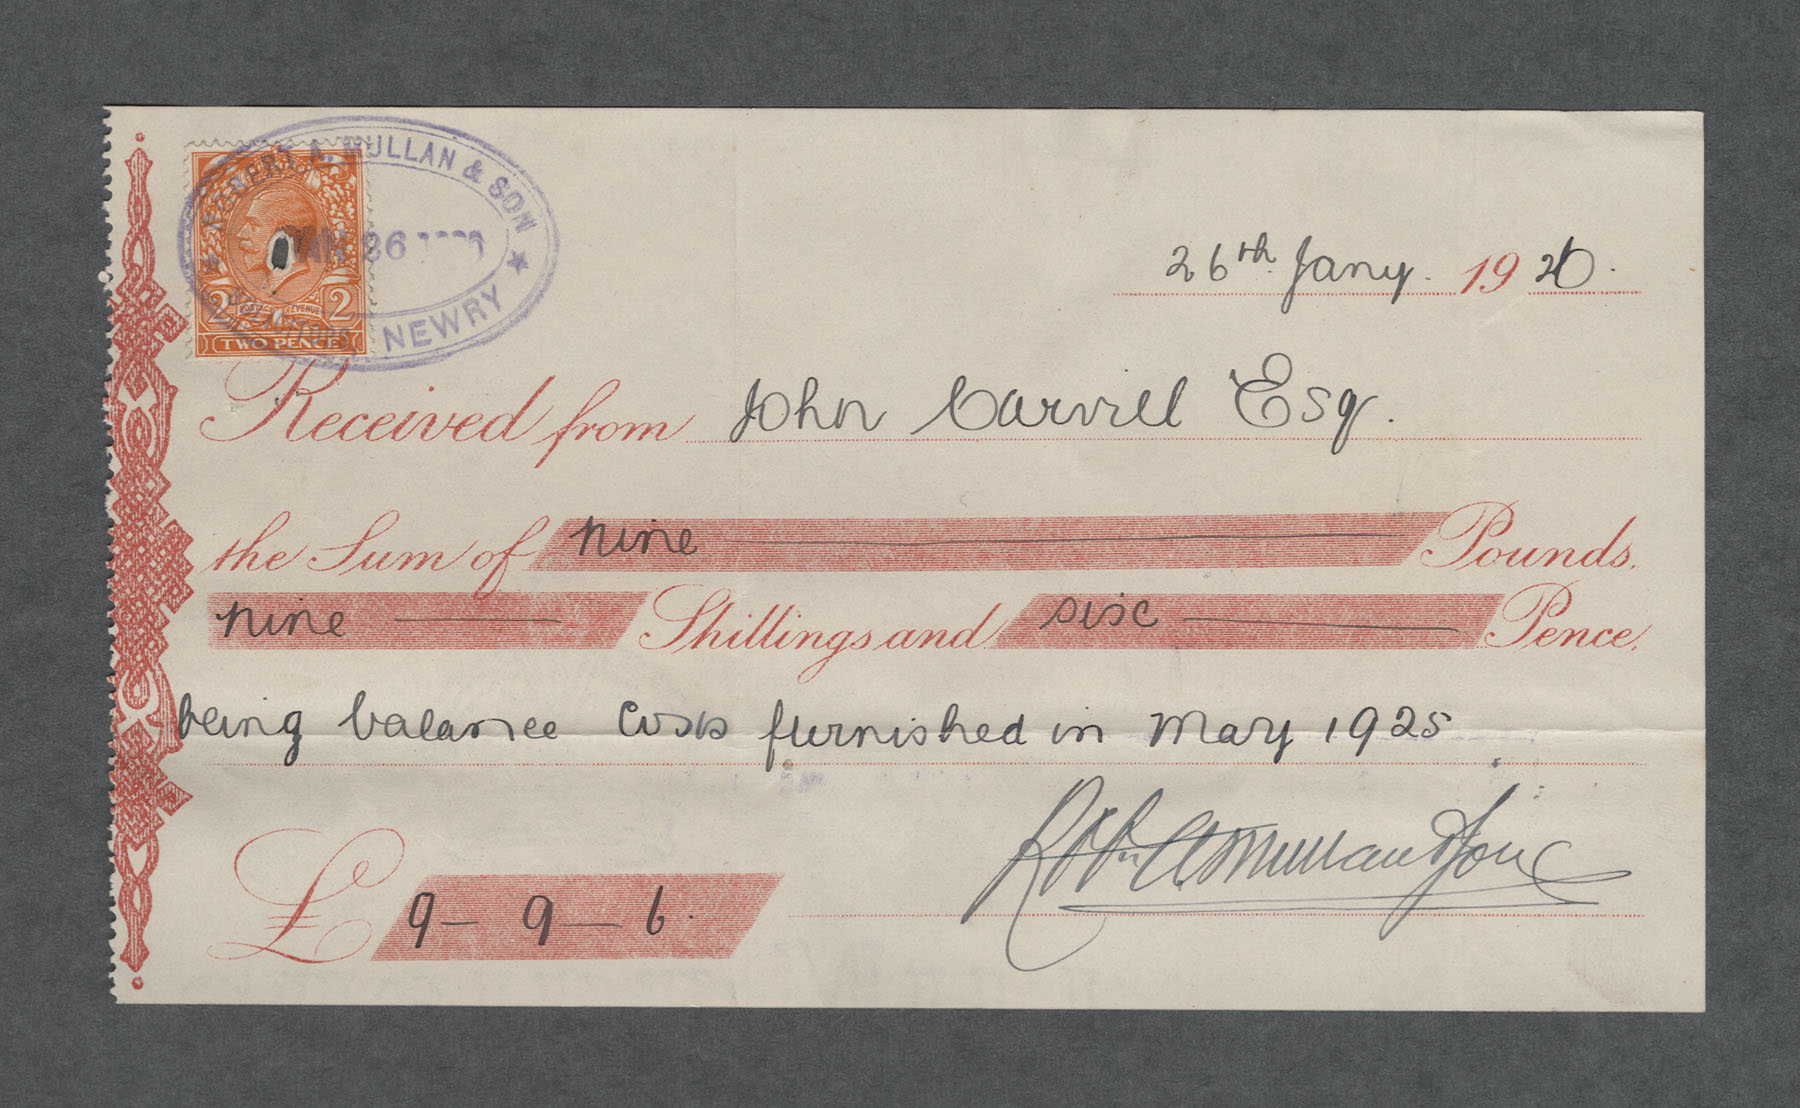 ROBERT A. MULLAN & SON
JAN 26 1926
SOLICITORS NEWRY
2 POSTAGE REVENUE 2
TWO PENCE
26th Jany. 1926.
Received from John Carvill Esq.
the Sum of nine Pounds.
nine Shillings and six Pence.
being balance Costs furnished in May 1925
Robt. A. Mullan & Son
£ 9 - 9 - 6.